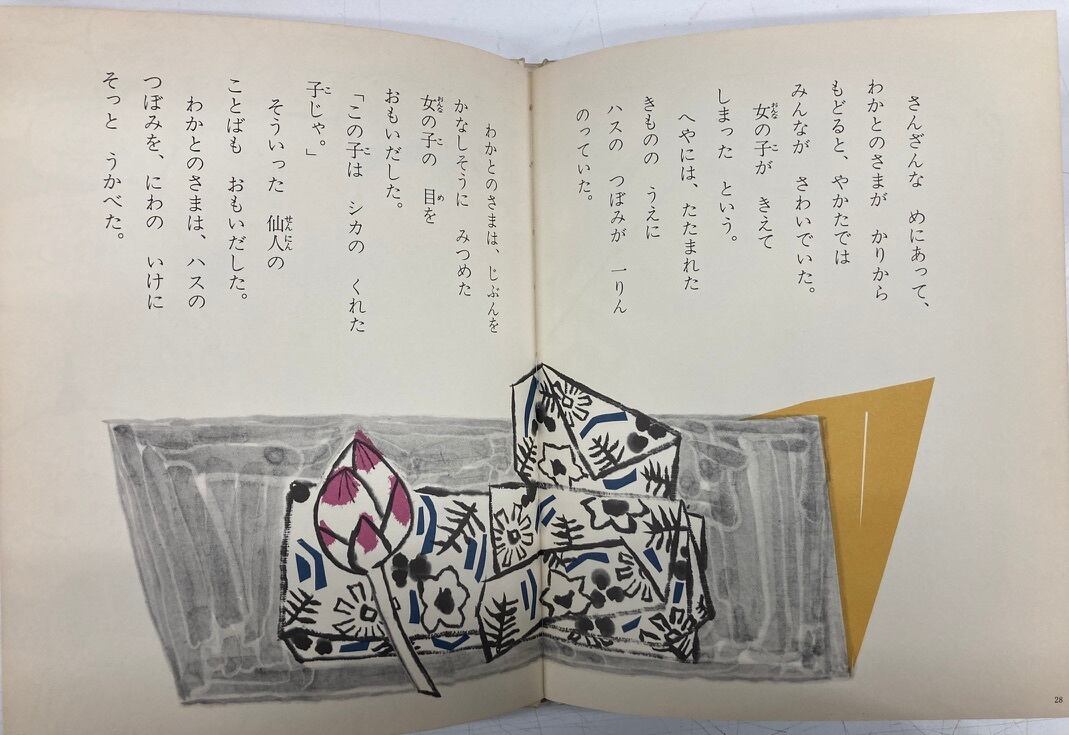 さんざんな　めにあって、
わかとのさまが　かりから
もどると、やかたでは
みんなが　さわいでいた。
女の子が　きえて
しまった　という。
へやには、たたまれた
きものの　うえに
ハスの　つぼみが　一りん
のっていた。
わかとのさまは、じぶんを
かなしそうに　みつめた
女の子の　目を
おもいだした。
「この子は　シカの　くれた
子じゃ。」
そういった　仙人の
ことばも　おもいだした。
わかとのさまは、ハスの
つぼみを、にわの　いけに
そっと　うかべた。
28